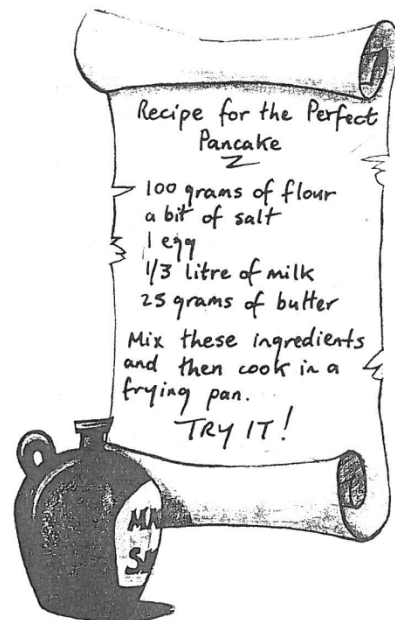 Recipe for the Perfect
Pancake
100 grams of flour
a bit of salt
1 egg
1/3 litre of milk
25 grams of butter
Mix these ingredients
and then cook in a
frying pan.
TRY IT!